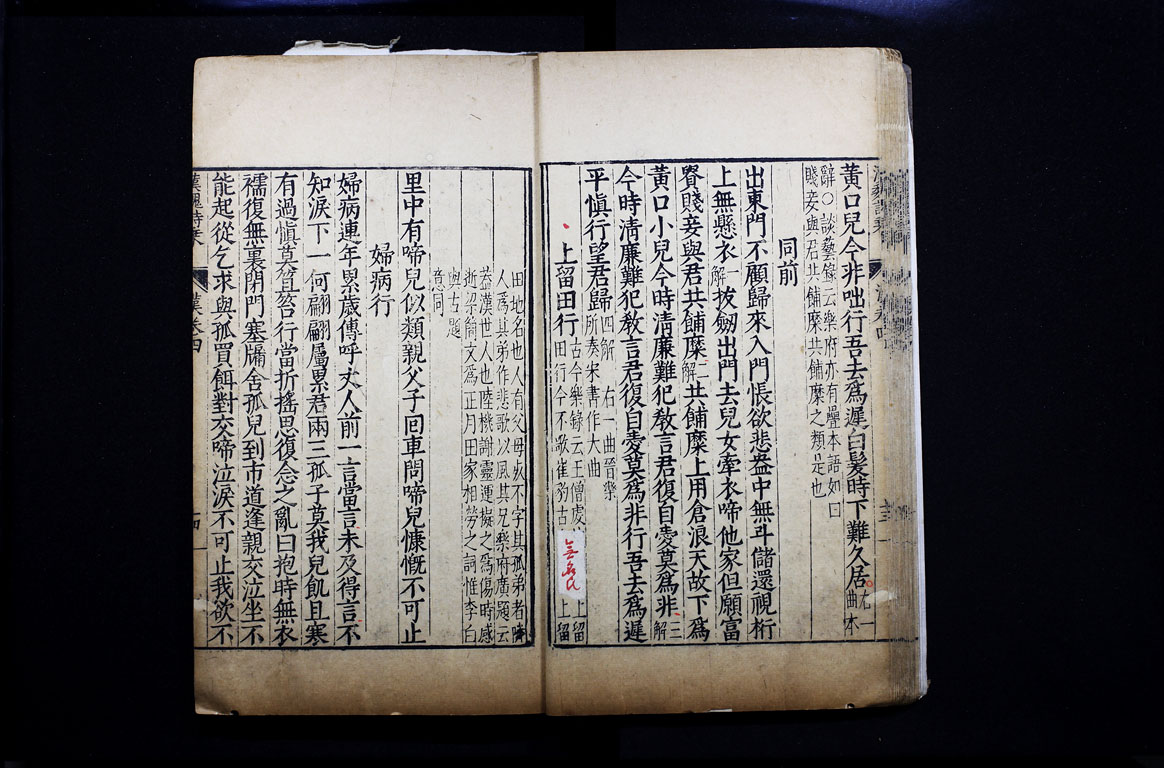 黃口兒今非咄行吾去爲遲白髮時下難久居右一
曲本
辭○談藝錄云樂府亦有疊本語如曰
賤妾與君共餔糜共餔糜之類是也
同前
出東門不顧歸來入門悵欲悲盎中無斗儲還視桁
上無懸衣一解拔劒出門去兒女牽衣啼他家但願富
貴賤妾與君共餔糜二解共餔糜上用倉浪天故下爲
黃口小兒今時清廉難犯敎言君復自愛莫爲非三解
今時清廉難犯敎言君復自愛莫爲非行吾去爲遲
平愼行望君歸四解 右一曲晉樂
所奏宋書作大曲
上留田行古今樂錄云王僧虔 上留
田行今不歌崔豹古 上留
無名氏
田地名也人有父母死不字其孤弟者隣
人爲其弟作悲歌以風其兄樂府廣題云
葢漢世人也陸機謝靈運擬之爲傷時感
逝梁簡文爲正月田家相勞之詞惟李白
與古題
意同
里中有啼兒似類親父子回車問啼兒慷慨不可止
婦病行
婦病連年累歲傳呼丈人前一言當言未及得言不
知淚下一何翩翩屬累君兩三孤子莫我兒飢且寒
有過愼莫笪笞行當折搖思復念之亂曰抱時無衣
襦復無裏閉門塞牖舍孤兒到市道逢親交泣坐不
能起從乞求與孤買餌對交啼泣淚不可止我欲不
漢魏詩乗
漢卷四